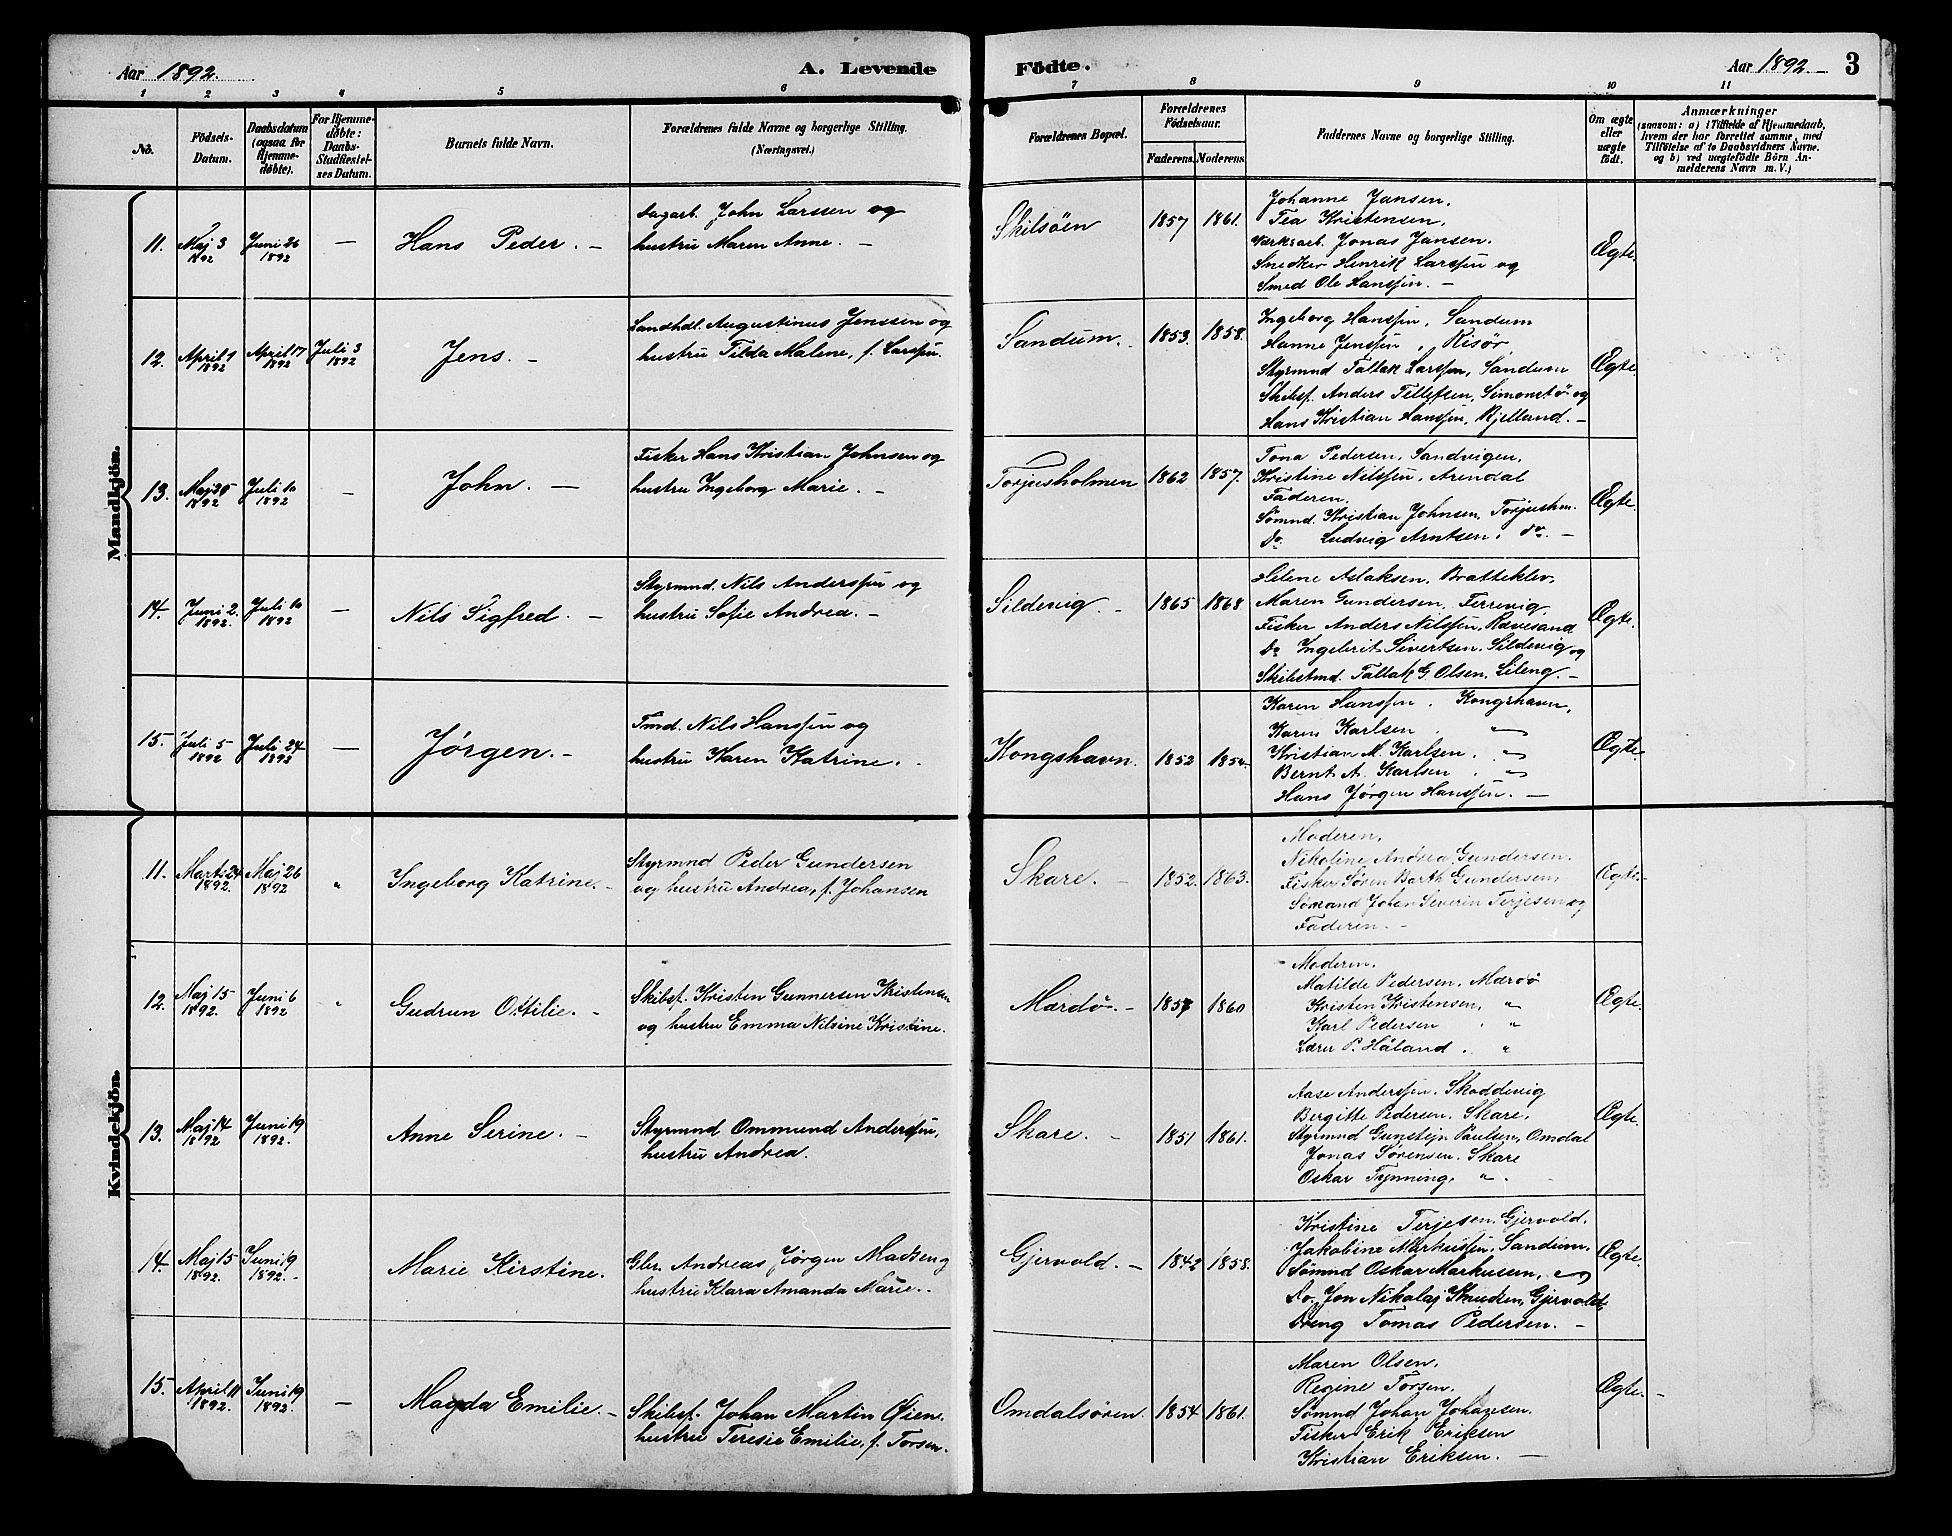 Aar 1892.
A. Levende
Födte.
Aar 1892. 3
1 2 3 4 5 6 7 8 9 10 11
No.
Födsels-
Datum.
Daabsdatum
(ogsaa for
Hjemme-
døbte).
For Hjemme-
døbte:
Daabs-
Stadfæstel-
ses Datum.
Barnets fulde Navn.
Forældrenes fulde Navne og borgerlige Stilling.
(Næringsvei.)
Forældrenes Bopæl.
Forældrenes
Födselsaar.
Faderens. Moderens.
Faddernes Navne og borgerlige Stilling.
Om ægte
eller
uægte
födt.
Anmærkninger
(saasom: a) i Tilfælde af Hjemmedaab,
hvem der har forrettet samme, med
Tilföielse af to Daabsvidners Navne.
og b) ved uægtefödte Börn An-
melderens Navn m. V.)
Mandkjön.
11. Maj 3 1892 Juni 26 1892 — Hans Peder. —
Dagarb. John Larssen og
hustru Maren Anne. —
Skilsöen 1857 1861.
Johanne Jansen,
Tea Kristensen,
Værksarb. Jonas Jansen.
Snedker Henrik Larssen og
Smed Ole Hanssen. —
Ægte.
12. April 9 1892 April 17 1892 Juli 3 1892 Jens. —
Landhdl. Augustinus Jenssen og
hustru Tilda Malene, f. Larssen.
Sandum. 1853. 1858.
Ingeborg Hanssen, Sandum
Hanne Jenssen, Risør,
Styrmnd Tallak Larssen, Sandum
Skibsf. Anders Tellefsen, Simonstö og
Hans Kristian Hanssen, Kjelland. —
Ægte.
13. Maj 25 1892 Juli 10 1892 — John. —
Fisker Hans Kristian Johnsen og
hustru Ingeborg Marie. —
Torjusholmen 1862 1857.
Tona Pedersen, Sandvigen,
Kristine Nilssen, Arendal
Faderen.
Sömnd. Kristian Johnsen, Torjushm.
Do. Ludvig Arntsen, do. —
Ægte.
14. Juni 2. 1892. Juli 10 1892 — Nils Sigfred. —
Styrmnd. Nils Anderssen og
hustru Sofie Andrea. —
Sildevig. — 1865 1868
Helene Aslaksen, Bratteklev,
Maren Gundersen, Ferrevig,
Fisker Anders Nilssen, Rævesand
Do Ingebrit Sivertsen, Sildevig og
Skibstmd. Tallak G. Olsen, Lileng. —
Ægte.
15. Juli 5 1892 Juli 24 1892 — Jørgen. —
Tmd. Nils Hanssen og
hustru Karen Katrine.
Kongshavn. 1852 1854.
Karen Hanssen, Kongshavn,
Karen Karlsen, "
Kristian M. Karlsen, "
Bernt A. Karlsen, "
Hans Jørgen Hanssen. —
Ægte.
Kvindekjön.
11. Marts 24 1892. Maj 26 1892 " Ingeborg Katrine. —
Styrmnd Peder Gundersen
og hustru Andrea, f. Johansen
Skare. — 1852. 1863.
Moderen,
Nikoline Andrea Gundersen.
Fisker Søren Barth Gundersen,
Sömand Johan Severin Terjesen og
Faderen. —
Ægte.
12. Maj 15 1892. Juni 6 1892 " Gudrun Ottilie. —
Skibsf. Kristen Gunnersen Kristensen
og hustru Emma Nilsine Kristine.
Mærdö. — 1857 1860
Moderen,
Matilde Pedersen, Mærdö
Kristen Kristensen, "
Karl Pedersen "
Lærer P. Håland, "
Ægte.
13. Maj 14 1892 Juni 19 1892. Anne Serine. —
Styrmnd Ommund Anderssen,
hustru Andrea.
Skare. — 1851 1861.
Aase Anderssen, Skoddevig
Bergitte Pedersen, Skare,
Styrmnd Gunstein Paulsen, Omdal
Jonas Sørensen, Skare
Oskar Tynning, "
Ægte.
14. Maj 15 1892. Juni 19 1892. Marie Kirstine.
Glr. Andreas Jørgen Madsen og
hustru Klara Amanda Marie.
Gjervold. — 1842 1858.
Kristine Terjesen, Gjervold,
Jakobine Markussen, Sandum,
Sömnd Oskar Markusen, "
Do. Jon Nikolaj Knudsen, Gjervold,
Dreng Tomas Pedersen. —
Ægte.
15. April 11 1892. Juni 19 1892. — Magda Emilie. —
Skibsf. Johan Martin Øien,
hustru Teresie Emilie, f. Torsen.
Omdalsören. 1854 1861.
Maren Olsen,
Regine Torsen,
Sömnd Johan Johansen.
Fisker Erik Eriksen
Kristian Eriksen. —
Ægte. —